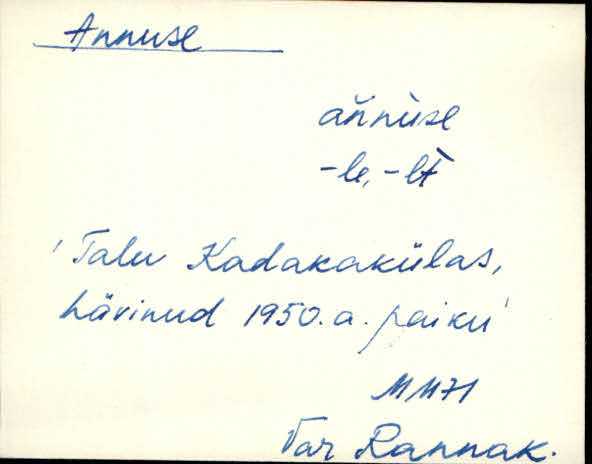 Annuse
ăǹnùse
-le, -lt
'Talu Kadakakülas,
hävinud 1950. a. paiku'
MM71
Var Rannak.